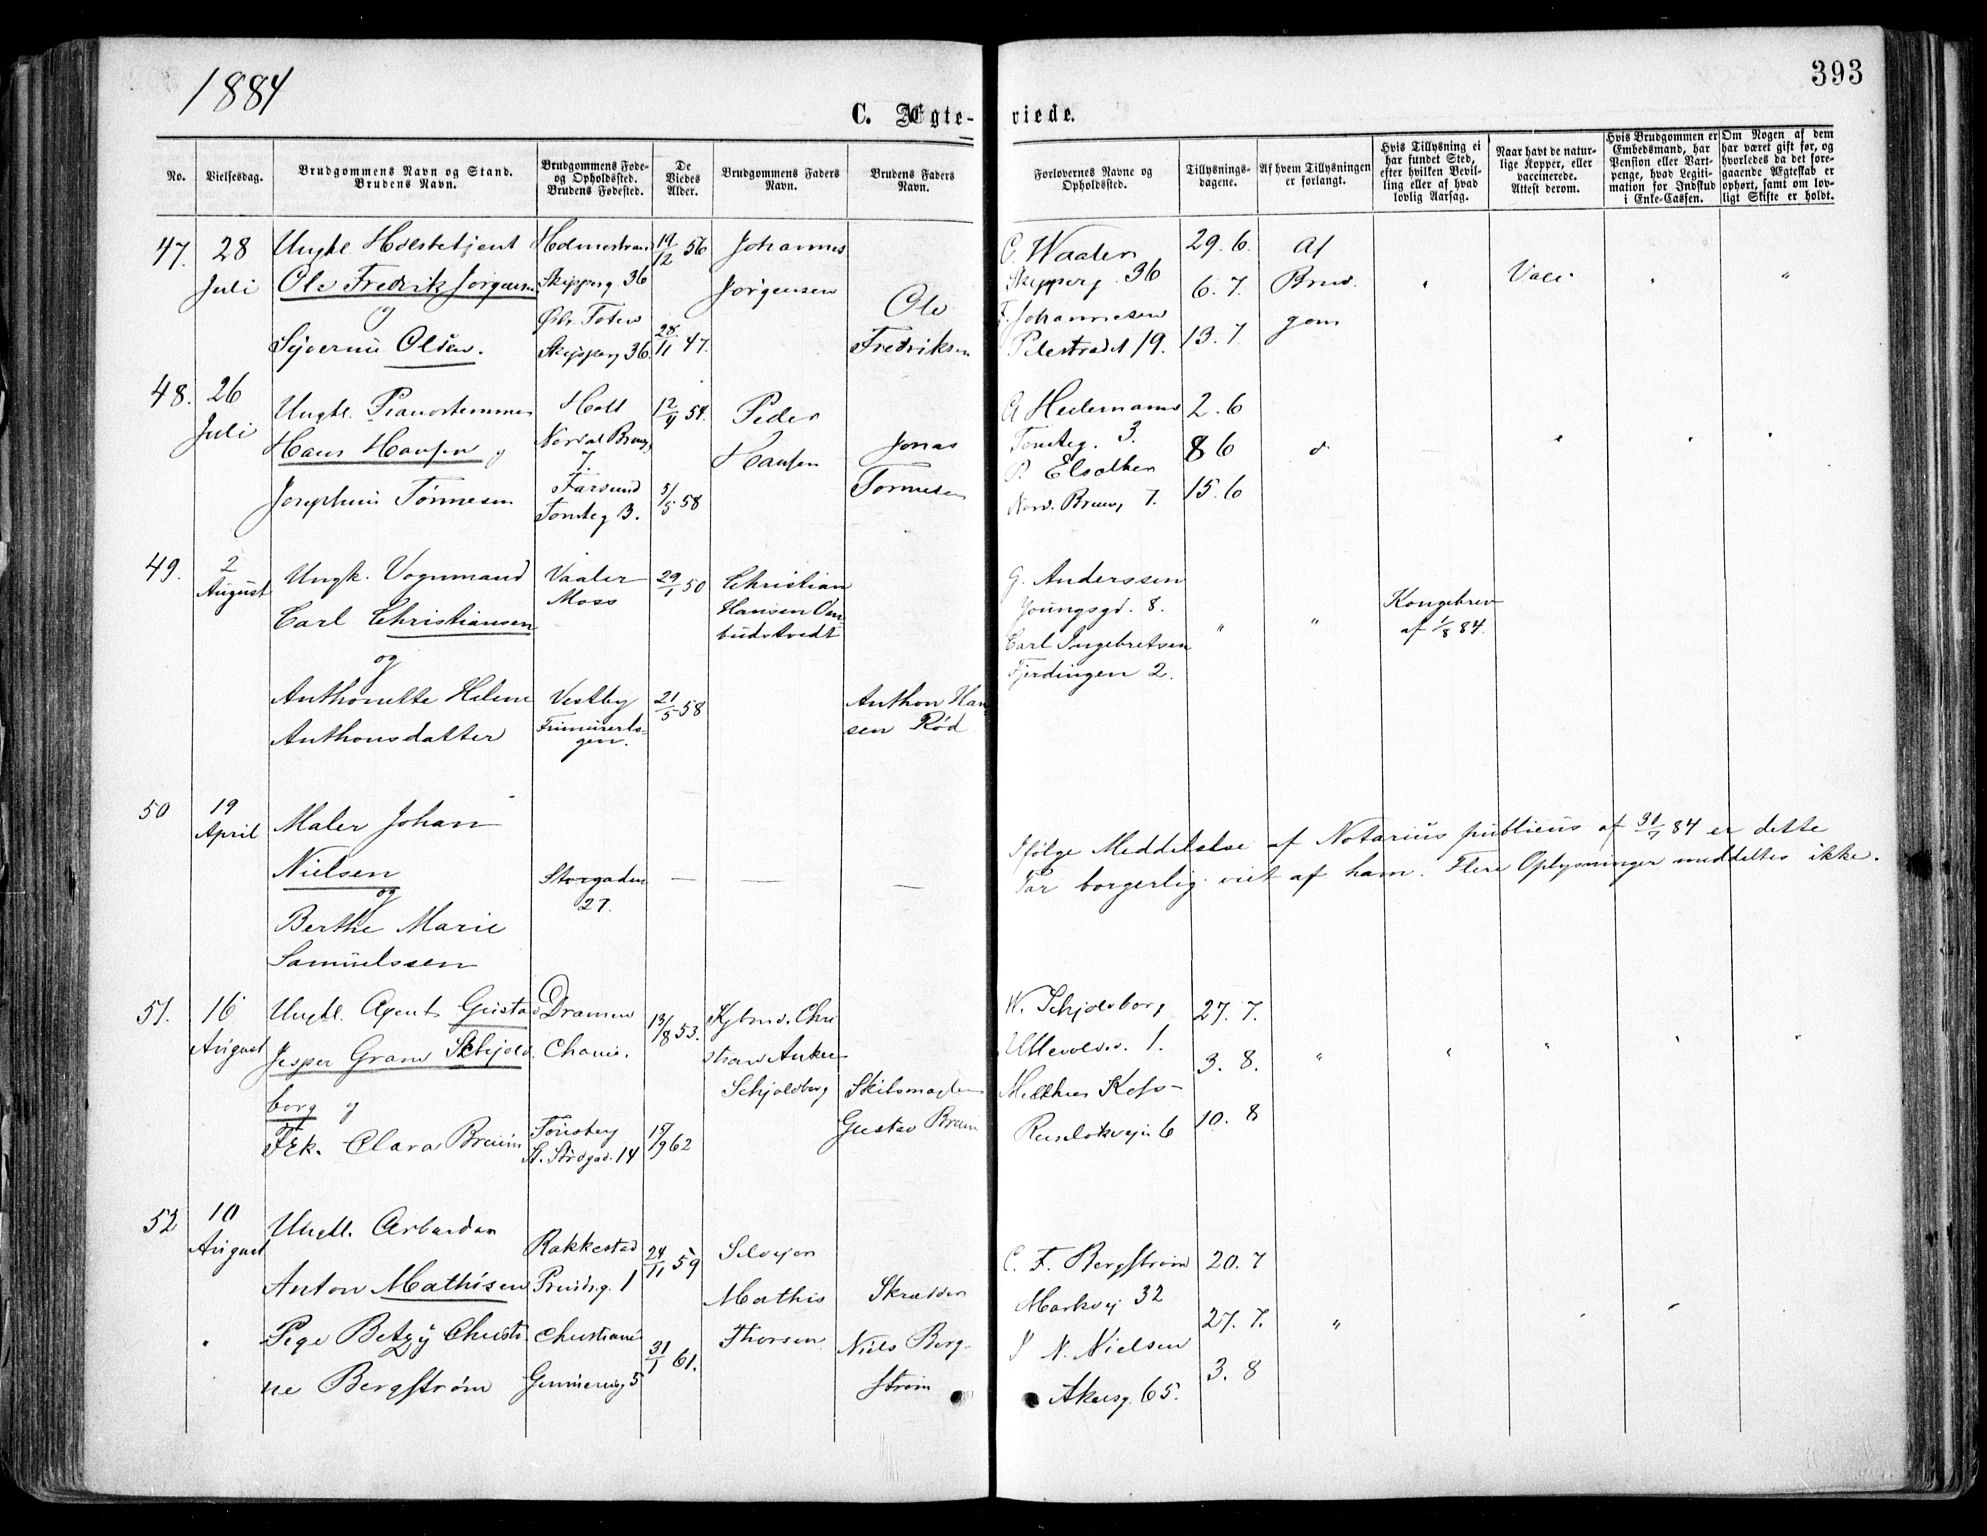 1884
393
C. Ægte-
viede.
No.
Vielsesdag.
Brudgommens Navn og Stand.
Brudens Navn.
Brudgommens Føde-
og Opholdssted.
Brudens Fødested.
De
Viedes
Alder.
Brudgommens Faders
Navn.
Brudens Faders
Navn.
Forlovernes Navne og
Opholdssted.
Tillysnings-
dagene.
Af hvem Tillysningen
er forlangt.
Hvis Tillysning ei
har fundet Sted,
efter hvilken Bevil-
ling eller af hvad
lovlig Aarsag.
Naar havt de natur-
lige Kopper, eller
vaccinerede.
Attest derom.
Hvis Brudgommen er
Embedsmand, har
Pension eller Vart-
penge, hvad Legiti-
mation for Indskud
i Enke-Cassen.
Om Nogen af dem
har været gift før, og
hvorledes da det fore-
gaaende Ægteskab er
ophørt, samt om lov-
ligt Skifte er holdt.
47.
28
Juli
Ungkl.
Ole Fredrik Jørgensen
og
Olsen.
Holmestrand
Skipperg 36
Østr. Toten
Skipperg 36.
19/12 56
28/11 47.
Johannes
Jørgensen
Ole
Fredriksen
C. Waaler
Skipperg. 36
F. Johannesen
Pilestrædet 19.
29. 6.
6. 7.
13. 7.
Af
Brud.
gom
Vacc
"
"
48.
26
Juli
Ungkl. Pianostemmer
Hans Hansen og
Josephine Tønnesen
Holt
7.
Farsund
Tomteg 3.
12/4 54.
5/5 58
Peder
Hansen
Jonas
Tønnesen
Tomteg. 3.
Nord. Brug 7.
2. 6
8 6
15. 6
49.
2
August
Ungk. Vognmand
Carl Christiansen
og
Anthonette Helene
Anthonsdatter
Vaaler
Moss
Vestby
Frimurerlo-
gen.
29/1 50
21/5 58
Christian
Hansen
Anthon Han-
sen Rød
G. Anderssen
Youngsgd. 8.
Carl Ingebretsen
Fjerdingen 2.
"
"
Kongebrev
af 1/8 84.
50
19
April
Maler Johan
Nielsen
og
Berthe Marie
Samuelssen
Storgaden
27.
—
—
—
Ifølge Meddelelse af Notarius publicus af 31/7 84 er dette
Par borgerlig viet af ham. Flere Oplysninger meddeltes ikke.
51.
16
August
Ungkl. Agent Gustav
Jesper Gram Schjold-
borg og
Frk. Clara Bruun
Dramen
Tønsberg
St. 14
13/8 53.
15/9 62
Kjbmd. Chri
stian Anker
Schjoldborg
Gustav Bruun
W. Schjoldborg
Ullevoldsv. 1.
Ruseløkvejn 6
27. 7.
3. 8.
10. 8
"
"
"
52
10
August
Ungkl. Arbardar
Anton Mathisen
Pige Betzy Christi
ne Bergstrøm
Rakkestad
1
Christiania
5
24/11 59
31/1 61.
Selvejer
Mathis
Thorsen
Skrædder
Niels Berg-
strøm
C. F. Bergstrøm
Markvej 32
N. Nielsen
Akersg. 65.
20. 7
27. 7.
3. 8
"